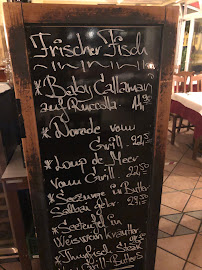 Frischer Fisch
* Baby Callamari
auf Ruccolla. 14,90
* Dorade vom
Grill. 22,50
* Loup de Meer
vom Grill. 22,50
* Seezunge in Butter
Salbei 29,50
* Seeteufel in
Weisswein kräuter
* Thunfisch Steak
vom Grill